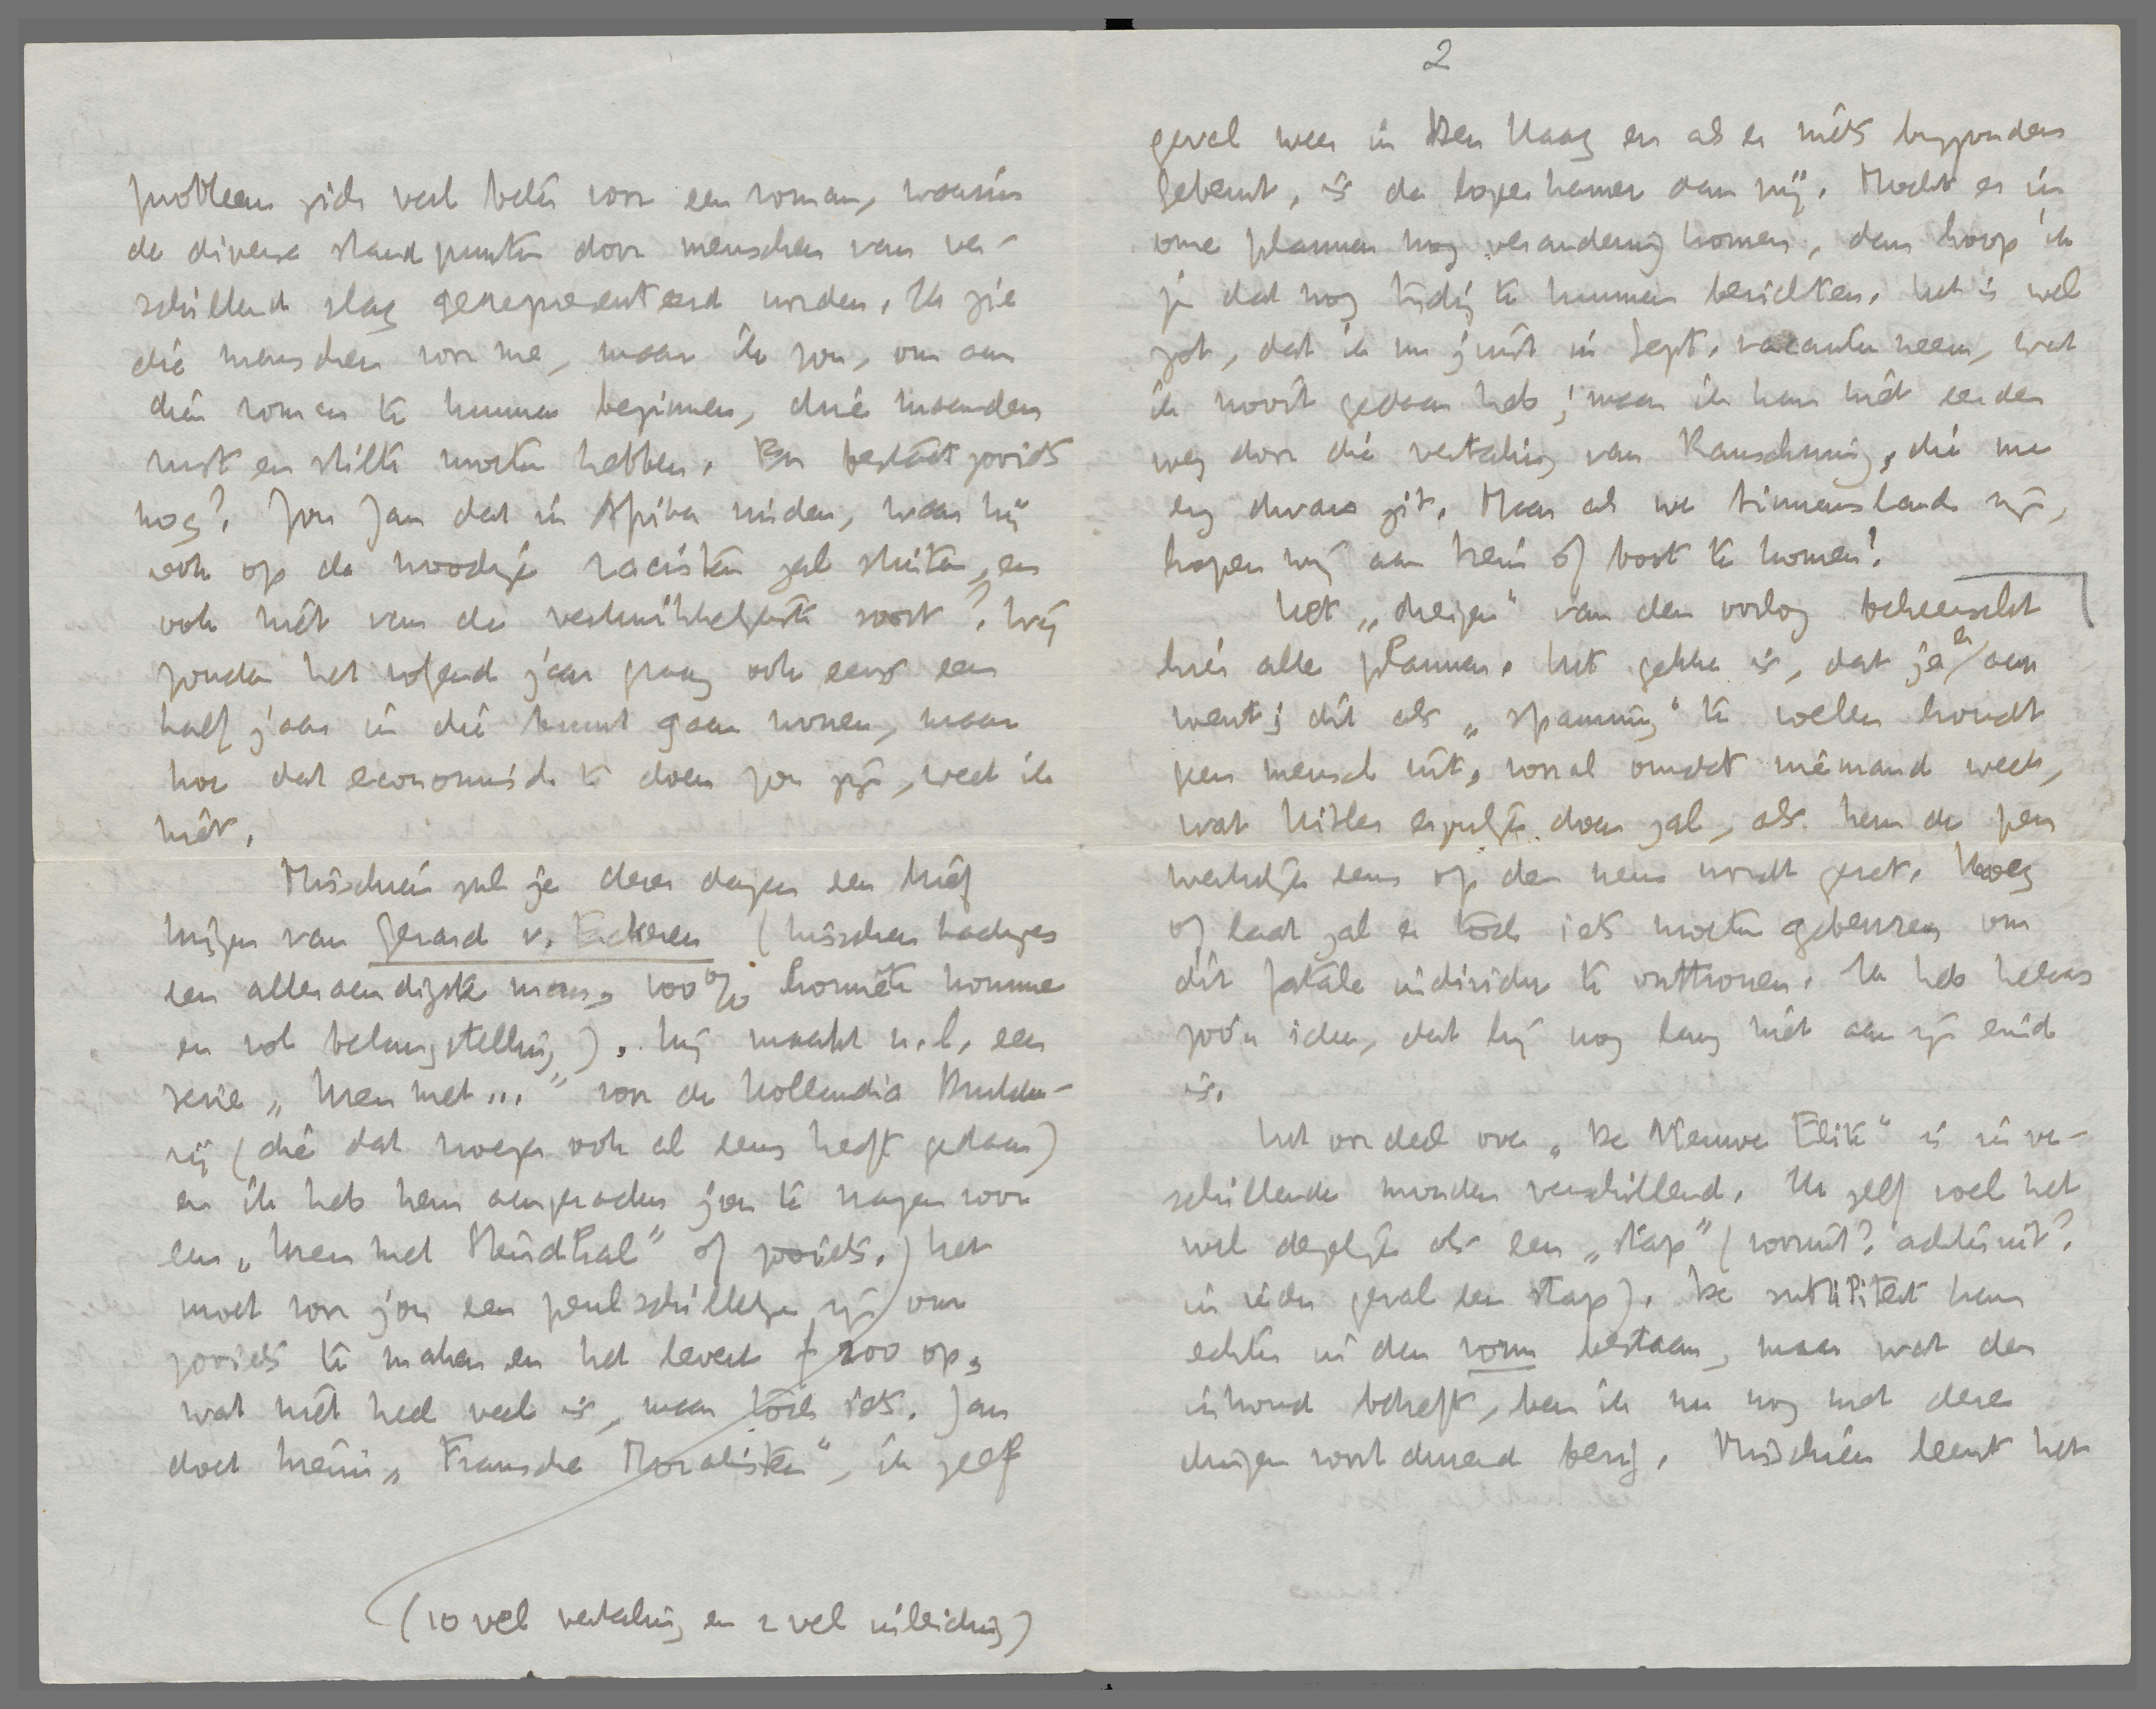 2
geval weer in Den Haag en als er niets byzonders
gebeurt, is de logeerkamer dan vrij. Mocht er in
onze plannen nog verandering komen, dan hoop ik
je dat nog tijdig te kunnen berichten. Het is wel
zot, dat ik nu juist in Sept. vacantie neem, wat
ik nooit gedaan heb; maar ik kan niet eerder
weg door die vertaling van Rauschning, die me
erg dwars zit. Maar als we binnenslands zijn,
hopen wij aan trein of boot te komen!
Het „dreigen" van den oorlog beheerscht
hier alle plannen. Het gekke is, dat je er aan
went; dit als „spanning" te voelen houdt
geen mensch uit, vooral omdat niemand weet,
wat Hitler eigenlijk doen zal, als hem de pen
werkelijk eens op den neus wordt gezet. Vroeg
of laat zal er toch iets moeten gebeuren om
dit fatale individu te onttronen. Ik heb helaas
zoo'n idee, dat hij nog lang niet aan zijn eind
is.
Het oordeel over „De Nieuwe Elite" is in ver-
schillende monden verschillend. Ik zelf voel het
wel degelijk als een „stap" (vooruit? achteruit?
in ieder geval een stap). De subtiliteit kan
echter in den vorm bestaan, maar wat den
inhoud betreft, ben ik nu nog met deze
dingen voortdurend bezig. Misschien leent het
probleem zich veel beter voor een roman, waarin
de diverse standpunten door menschen van ver-
schillend slag gerepresenteerd worden. Ik zie
die menschen voor me, maar ik zou, om aan
dien roman te kunnen beginnen, drie maanden
rust en stilte moeten hebben. En bestaat zooiets
nog? Zou Jan dat in Afrika vinden, waar hij
ook op de noodige racisten zal stuiten, en
ook niet van de verkwikkelijkste soort? Wij
zouden het volgend jaar graag ook eens een
half jaar in die buurt gaan wonen, maar
hoe dat economisch te doen zou zijn, weet ik
niet.
Misschien zul je dezer dagen een brief
krijgen van Gerard v. Eckeren (tusschen haakjes
een alleraardigste man, 100% honnête homme
en vol belangstelling). Hij maakt n.l. een
serie „Uren met..." voor de Hollandia Drukke-
rij (die dat vroeger ook al eens heeft gedaan)
en ik heb hem aangeraden jou te vragen voor
een „Uren met Stendhal" of zooiets. Het
moet voor jou een peulschilletje zijn om
zooiets te maken en het levert f 200 op,
wat niet heel veel is, maar toch iets. Jan
doet hierin „Fransche Moralisten", ik geef
(10 vel vertaling en 2 vel inleiding)